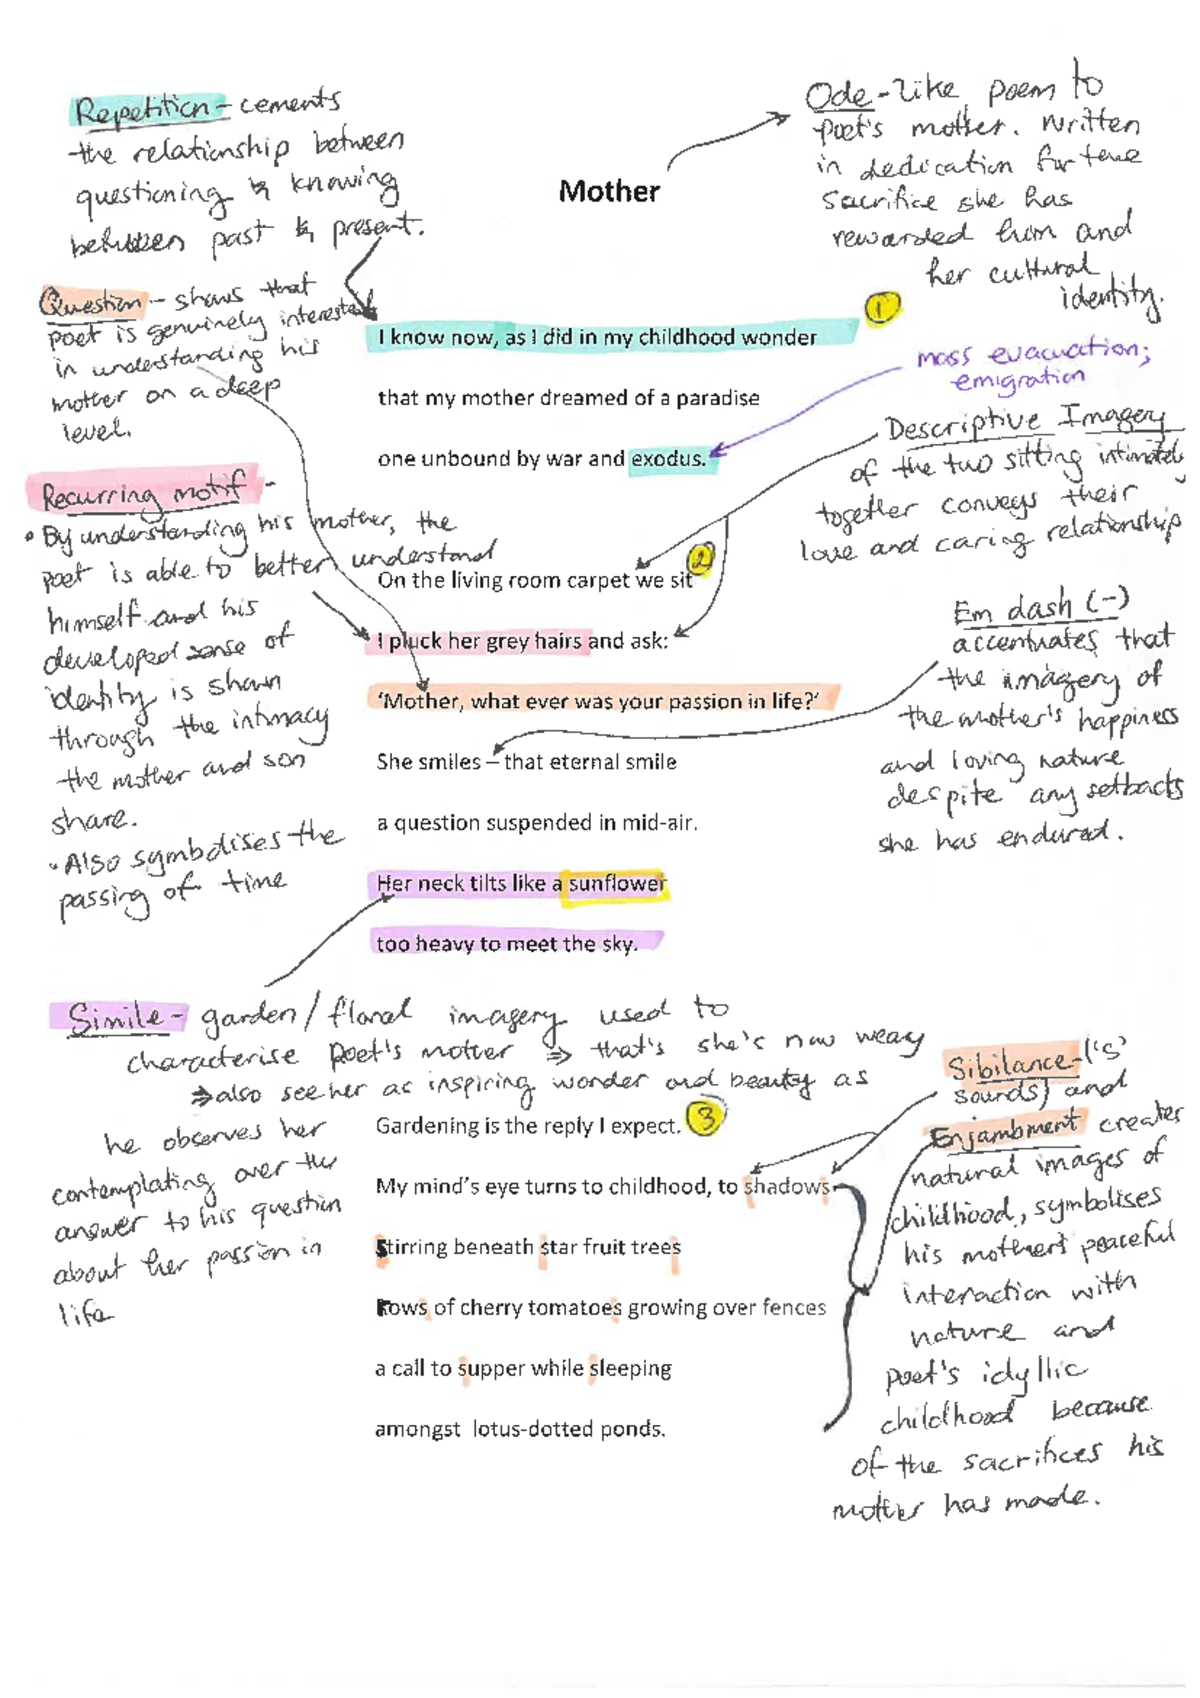 Repetition - cements
the relationship between
questioning & knowing
between past & present.
Ode-like poem to
poet's mother. Written
in dedication for the
sacrifice she has
rewarded him and
her cultural
identity.
Mother
Question - shows that
poet is genuinely interested
in understanding his
mother on a deep
level.
1
I know now, as I did in my childhood wonder
that my mother dreamed of a paradise
one unbound by war and exodus.
mass evacuation;
emigration
Descriptive Imagery
of the two sitting intimately
together conveys their
love and caring relationship
Recurring motif -
• By understanding his mother, the
poet is able to better understand
himself and his
developed sense of
identity is shown
through the intimacy
the mother and son
share.
• Also symbolises the
passing of time
2
On the living room carpet we sit
I pluck her grey hairs and ask:
'Mother, what ever was your passion in life?'
She smiles – that eternal smile
a question suspended in mid-air.
Her neck tilts like a sunflower
too heavy to meet the sky.
Em dash (-)
accentuates that
the imagery of
the mother's happiness
and loving nature
despite any setbacks
she has endured.
Simile - garden/floral imagery used to
characterise poet's mother ⇒ that's she's now weary
⇒ also see her as inspiring wonder and beauty as
he observes her
contemplating over the
answer to his question
about her passion in
life
Gardening is the reply I expect.
3
My mind's eye turns to childhood, to shadows
Stirring beneath star fruit trees
Rows of cherry tomatoes growing over fences
a call to supper while sleeping
amongst lotus-dotted ponds.
Sibilance - ('s'
sounds) and
Enjambment creates
natural images of
childhood, symbolises
his mothers peaceful
interaction with
nature and
poet's idyllic
childhood because
of the sacrifices his
mother has made.